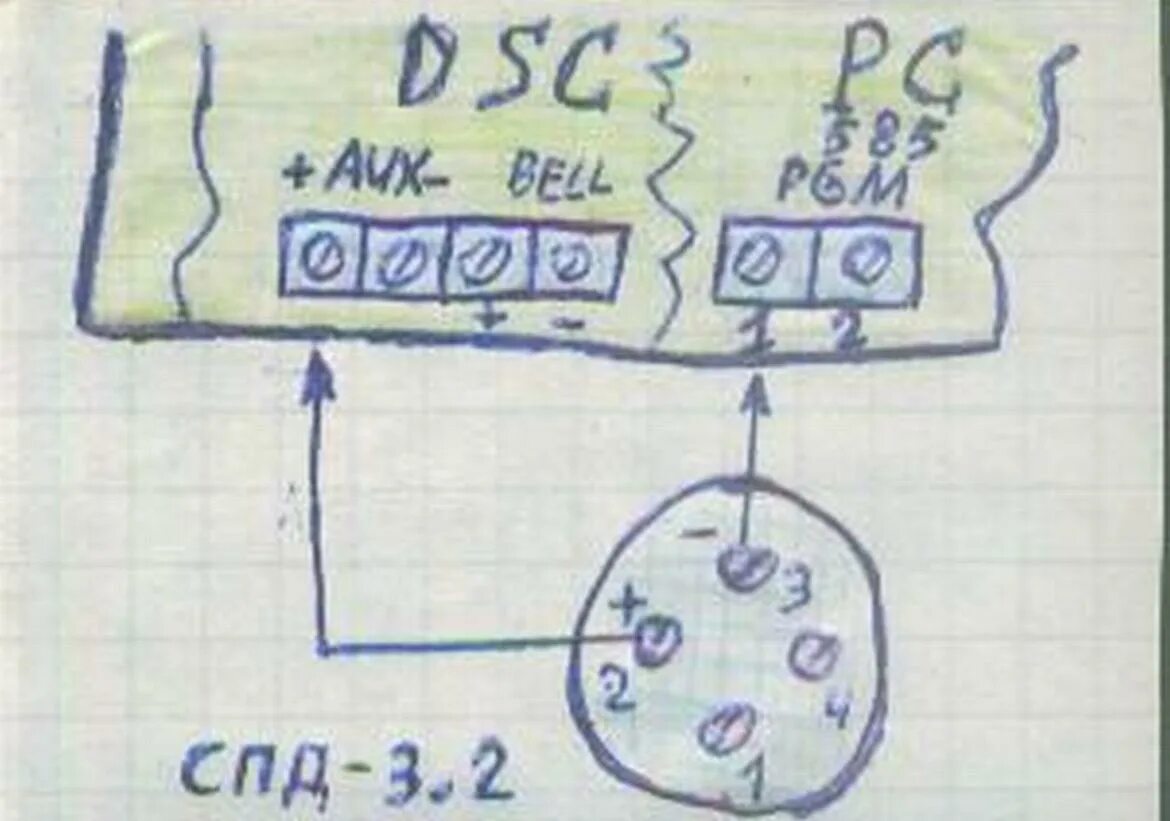 DSC PC
585
+ AUX - BELL PGM
+ - 1 2
- 3
+
2 4
1
СПД-3.2